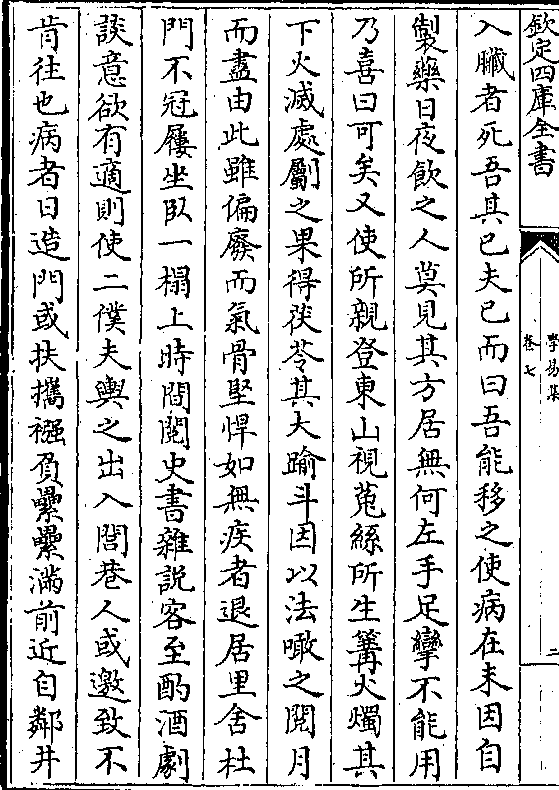 欽定四庫全書
學易集
卷七
二
入臟者死吾其已夫已而曰吾能移之使病在末因自
製藥日夜飲之人莫見其方居無何左手足攣不能用
乃喜曰可矣又使所親登東山視菟絲所生篝火燭其
下火滅處斸之果得茯苓其大踰斗因以法噉之閱月
而盡由此雖偏廢而氣骨堅悍如無疾者退居里舍杜
門不冠屨坐臥一榻上時閱史書雜說客至酌酒劇
談意欲有適則使二僕夫輿之出入閭巷人或邀致不
肯往也病者日造門或扶攜襁負纍纍滿前近自鄰井